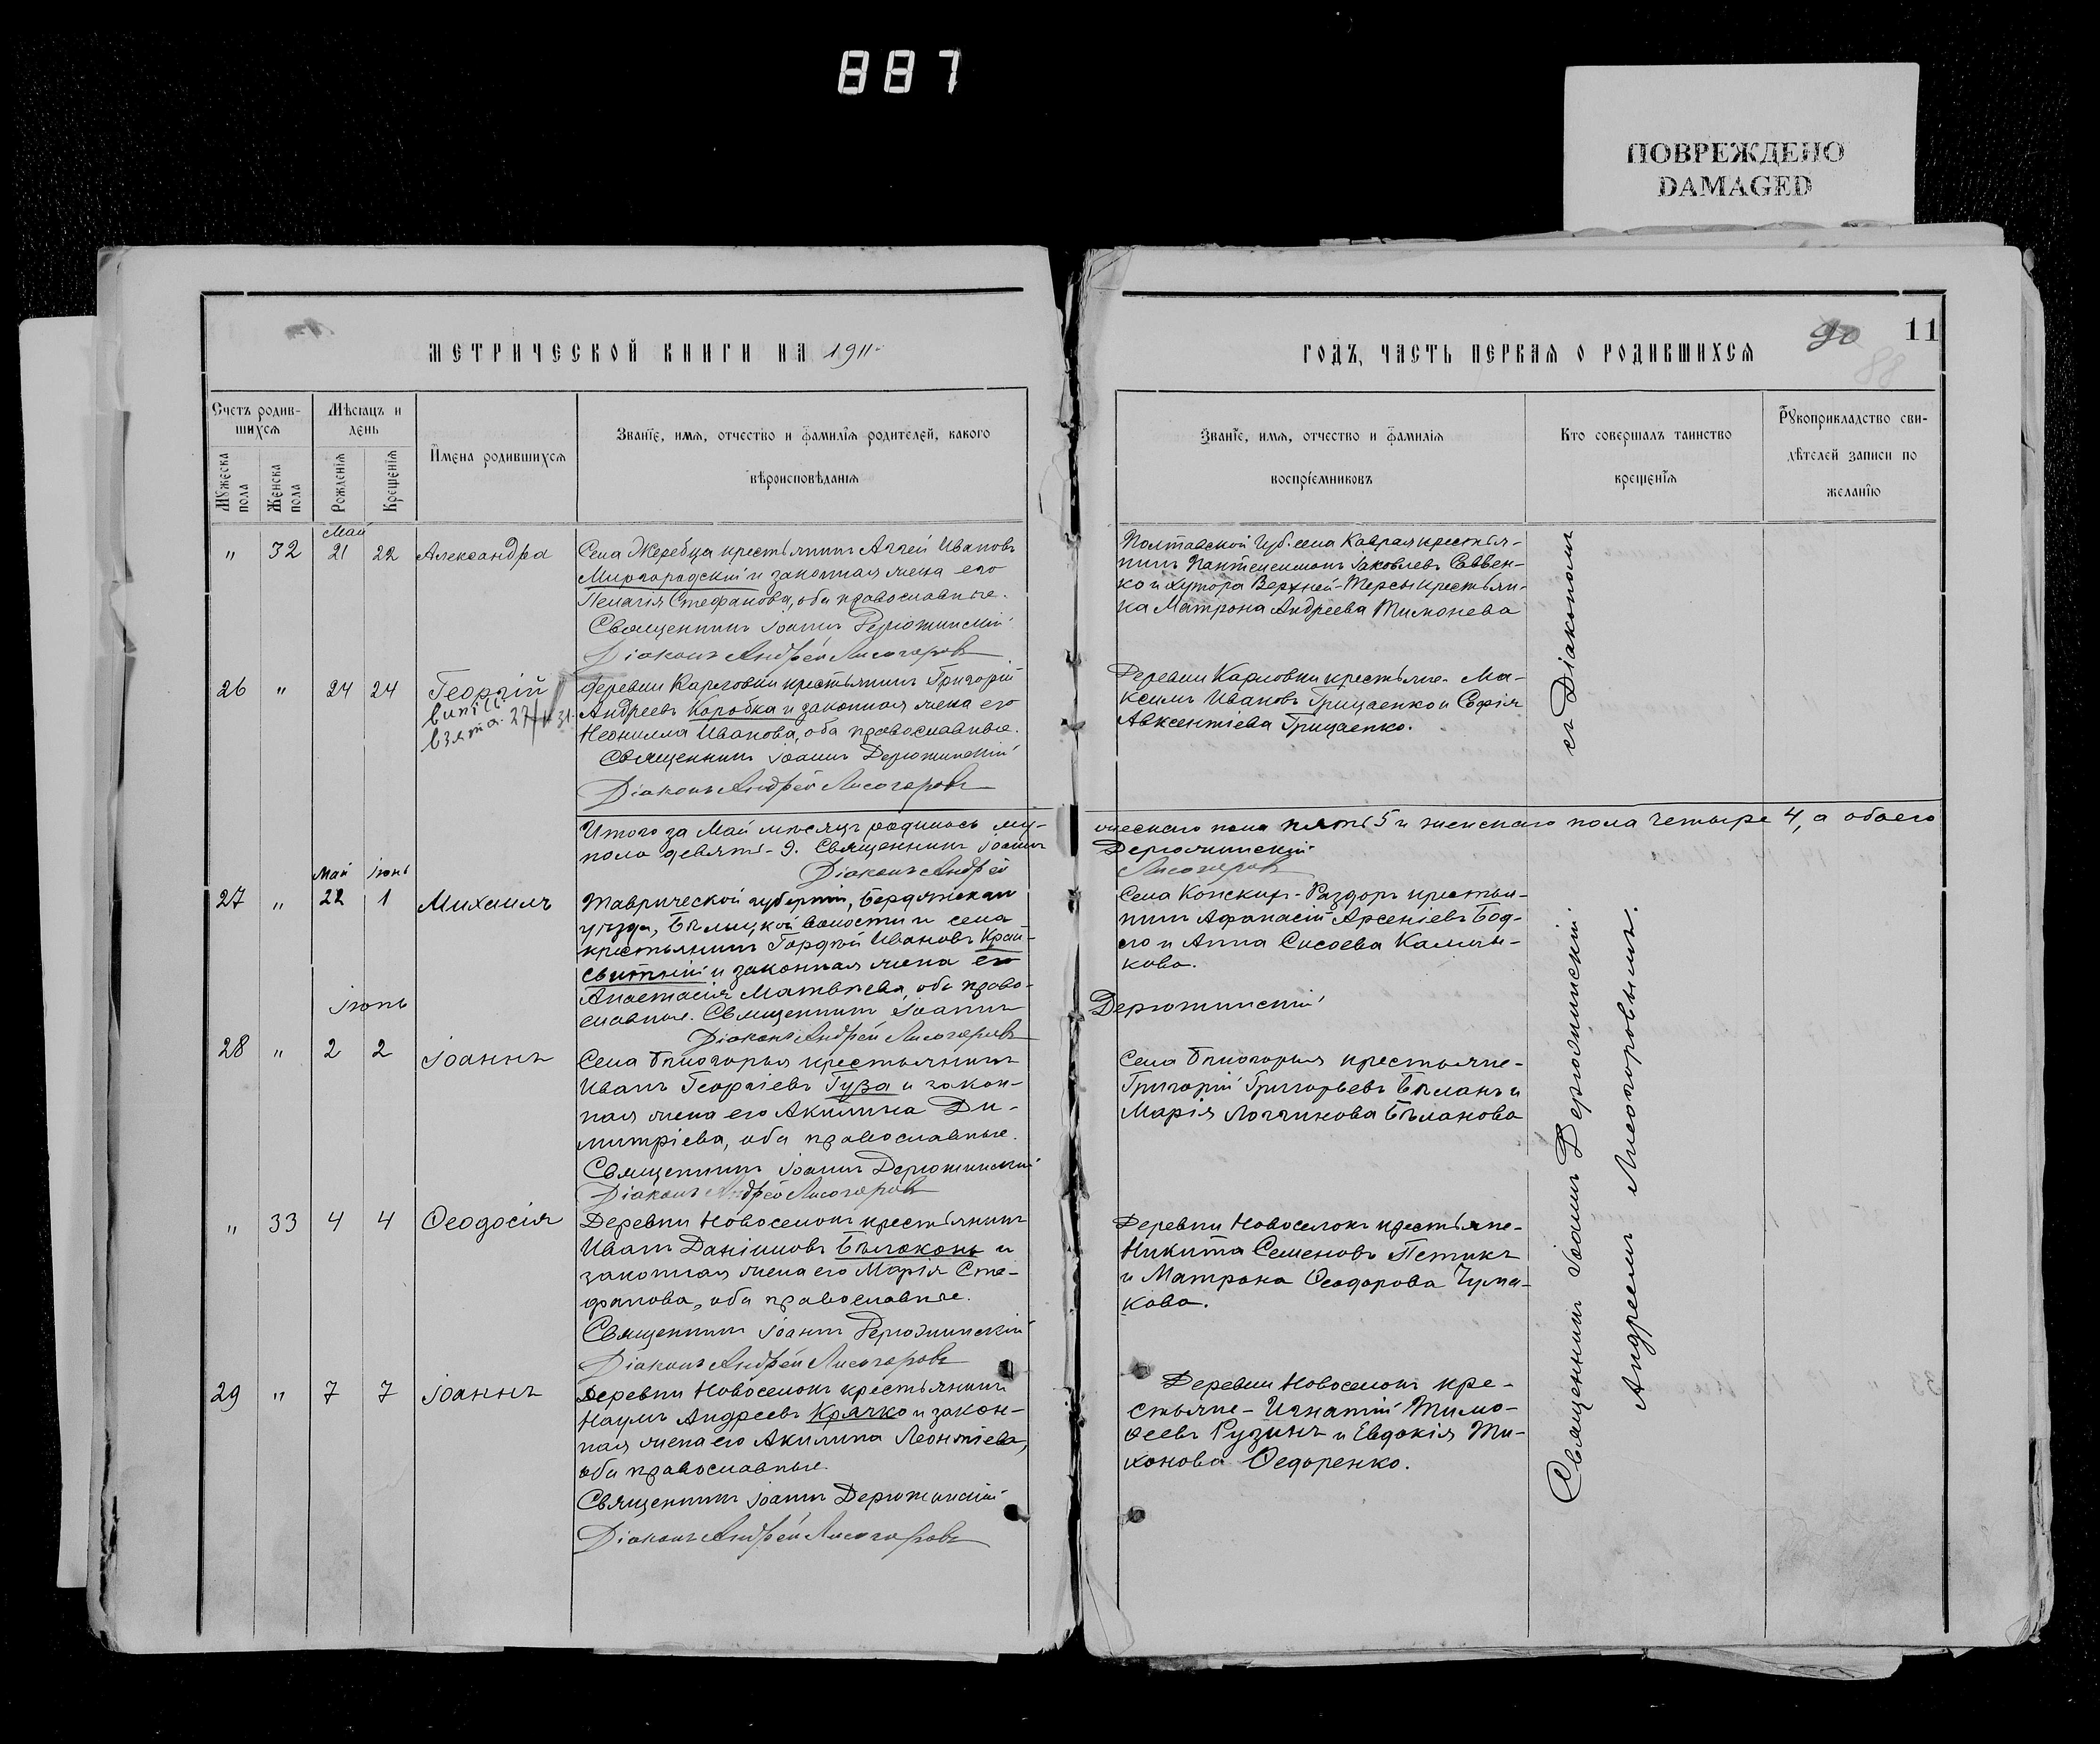 887
ПОВРЕЖДЕНО
DAMAGED
МЕТРИЧЕСКОЙ КНИГИ НА 1911
Счетъ родив-
шихся
Мѣсяцъ и
день
Имена родившихся
Званіе, имя, отчество и фамилія родителей, какого
вѣроисповѣданія
Мужеска пола
Женска пола
Рожденія
Крещенія
Май
" 32 21 22 Александра
Села Жеребца крестьянинъ Аггей Ивановъ
Миргородскій и законная жена его
Пелагія Стефанова, оба православные.
Священникъ Іоаннъ Дерюжинскій
Діаконъ Андрей Лисогоровъ
26 " 24 24 Георгій
взята 27/II 31.
Деревни Карловки крестьянинъ Григорій
Андреевъ Коробка и законная жена его
Неонилла Иванова, оба православные.
Священникъ Іоаннъ Дерюжинскій
Діаконъ Андрей Лисогоровъ
Итого за Май мѣсяцъ родилось му-
пола девять - 9. Священникъ Іоаннъ
Діаконъ Андрей
Май Іюнь
27 " 22 1 Михаилъ
Таврической губерніи, Бердянскаго
уѣзда, волости и села
крестьянинъ Гордѣй Ивановъ Край-
свитній и законная жена его
Анастасія Матвѣева, оба право-
славные. Священникъ Іоаннъ
Діаконъ Андрей Лисогоровъ
Іюнь
28 " 2 2 Іоаннъ
Села Бѣлогорья крестьянинъ
Иванъ Георгіевъ Гуза и закон-
ная жена его Акилина Ди-
митріева, оба православные.
Священникъ Іоаннъ Дерюжинскій
Діаконъ Андрей Лисогоровъ
" 33 4 4 Ѳеодосія
Деревни Новоселокъ крестьянинъ
Иванъ Даніиловъ Бѣлоконь и
законная жена его Марія Сте-
фанова, оба православные.
Священникъ Іоаннъ Дерюжинскій
Діаконъ Андрей Лисогоровъ
29 " 7 7 Іоаннъ
Деревни Новоселокъ крестьянинъ
Наумъ Андреевъ Крячко и закон-
ная жена его Акилина Леонтіева,
оба православные.
Священникъ Іоаннъ Дерюжинскій
Діаконъ Андрей Лисогоровъ
ГОДЪ, ЧАСТЬ ПЕРВАЯ О РОДИВШИХСЯ
90
11
88
Званіе, имя, отчество и фамилія
воспріемниковъ
Кто совершалъ таинство
крещенія
Рукоприкладство сви-
дѣтелей записи по
желанію
Полтавской губ. села Каврая крестья-
нинъ Пантелеимонъ Іаковлевъ Саввен-
ко и хутора Верхней-Терсы крестьян-
ка Матрона Андреева Тимонева
Деревни Карловки крестьяне Ма-
ксимъ Ивановъ Грицаенко и Софія
Авксентіева Грицаенко.
жескаго пола пять 5 и женскаго пола четыре 4, а обоего
Дерюжинскій
Лисогоровъ
Села Конскихъ-Раздоръ крестьян-
нинъ Афанасій Арсеніевъ Бод-
ло и Анна Сисоева Калмы-
кова.
Дерюжинскій
Села Бѣлогорья крестьяне-
Григорій Григорьевъ Бѣланъ и
Марія Логгинова Бѣланова
Деревни Новоселокъ крестьяне-
Никита Семеновъ Петикъ
и Матрона Ѳеодорова Чума-
кова.
Деревни Новоселокъ кре-
стьяне - Игнатій Тимо-
ѳеевъ Рузинъ и Евдокія Ти-
хонова Ѳедоренко.
Священникъ Іоаннъ Дерюжинскій
съ Діакономъ
Андреемъ Лисогоровымъ.